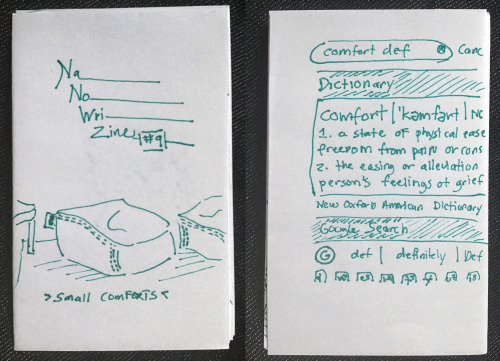 Na
No
Wri
Zine #9
>Small Comforts<
comfort def ⊗ Canc
Dictionary
comfort | ˈkəmfərt | NO
1. a state of physical ease
freedom from pain or cons
2. the easing or alleviation
person's feelings of grief
New Oxford American Dictionary
Google Search
G def | definitely | Def